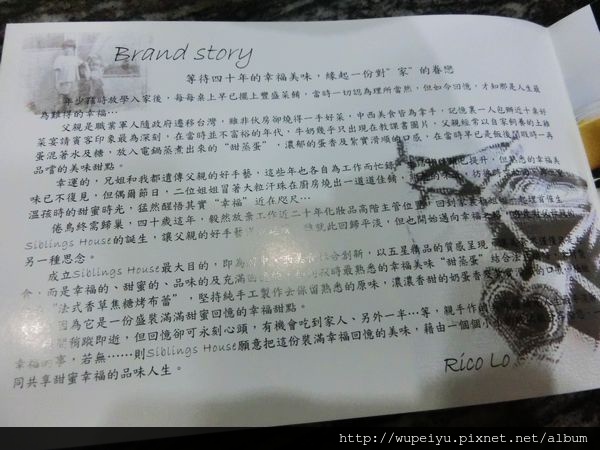 Brand story
等待四十年的幸福美味，緣起一份對"家"的眷戀
年少孩時放學入家後，每每桌上早已擺上豐盛菜餚，當時一切認為理所當然，但如今回憶，才知那是人生最
為難得的幸福…
父親是職業軍人隨政府遷移台灣，雖非伙房卻燒得一手好菜，中西美食皆為拿手，記憶裏一人包辦近十桌好
菜宴請賓客印象最為深刻，在當時並不富裕的年代，牛奶幾乎只出現在教課書圖片，父親經常以自家飼養的土雞
蛋混著水及糖，放入電鍋蒸煮出來的"甜蒸蛋"，濃郁的蛋香及紮實滑順的口感，在當時早已是飯後閒暇時再
品嚐的美味甜點。
幸運的，兄姐和我都遺傳父親的好手藝，這些年也各自為工作而忙碌 已提升，但熟悉的幸福美
味已不復見，但偶爾節日，二位姐姐冒著大粒汗珠在廚房燒出一道道佳餚
溫孩時的甜蜜時光，猛然醒悟其實"幸福"近在咫尺…
倦鳥終需歸巢，四十歲這年，毅然放棄工作近二十年化妝品高階主管位置，回到
Siblings House的誕生，讓父親的好手藝 就此回歸平淡，但也開始邁向幸福之
另一種思念。
成立Siblings House最大目的，即為 創新，以五星精品的質感呈現
食，而是幸福的、甜蜜的、品味的及充滿 時最熟悉的幸福美味"甜蒸蛋"結合法
"法式香草焦糖烤布蕾"，堅持純手工製作去保留熟悉的原味，濃濃香甜的奶蛋香
因為它是一份盛裝滿滿甜蜜回憶的幸福甜點。
即逝，但回憶卻可永刻心頭，有機會吃到家人、另外一半…等，親手作的
幸福的事，若無……則Siblings House願意把這份裝滿幸福回憶的美味，藉由一個個
同共享甜蜜幸福的品味人生。
Rico Lo
http://wupeiyu.pixnet.net/album